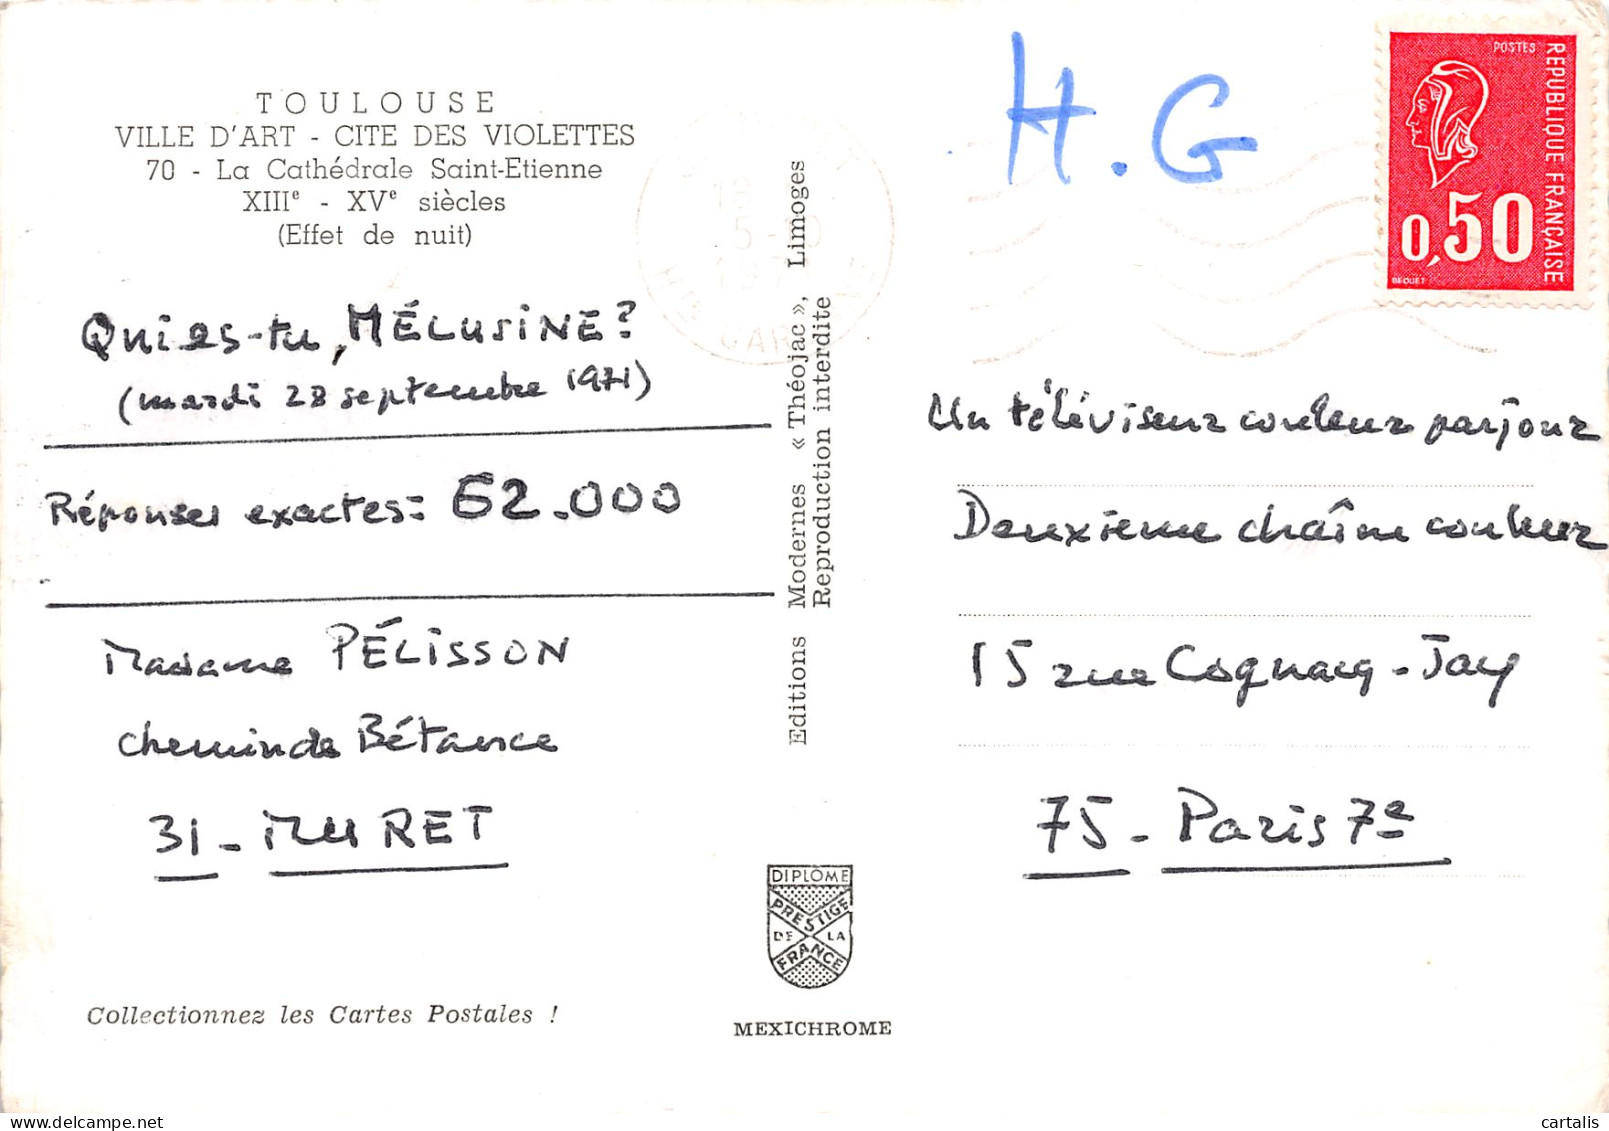 TOULOUSE
VILLE D'ART - CITE DES VIOLETTES
70 - La Cathédrale Saint-Etienne
XIIIe - XVe siècles
(Effet de nuit)
Qui es-tu, MÉLUSINE?
(mardi 28 septembre 1971)
Réponses exactes: 62.000
Madame PÉLISSON
chemin de Bétance
31 - MURET
Collectionnez les Cartes Postales !
Editions Modernes « Théojac », Limoges
Reproduction interdite
DIPLOME
PRESTIGE
DE LA
FRANCE
MEXICHROME
H.G
POSTES
REPUBLIQUE FRANÇAISE
0,50
BEQUET
Un téléviseur couleur par jour
Deuxième chaîne couleur
15 rue Cognacq-Jay
75 - Paris 7e
https://www.delcampe.net
cartalis